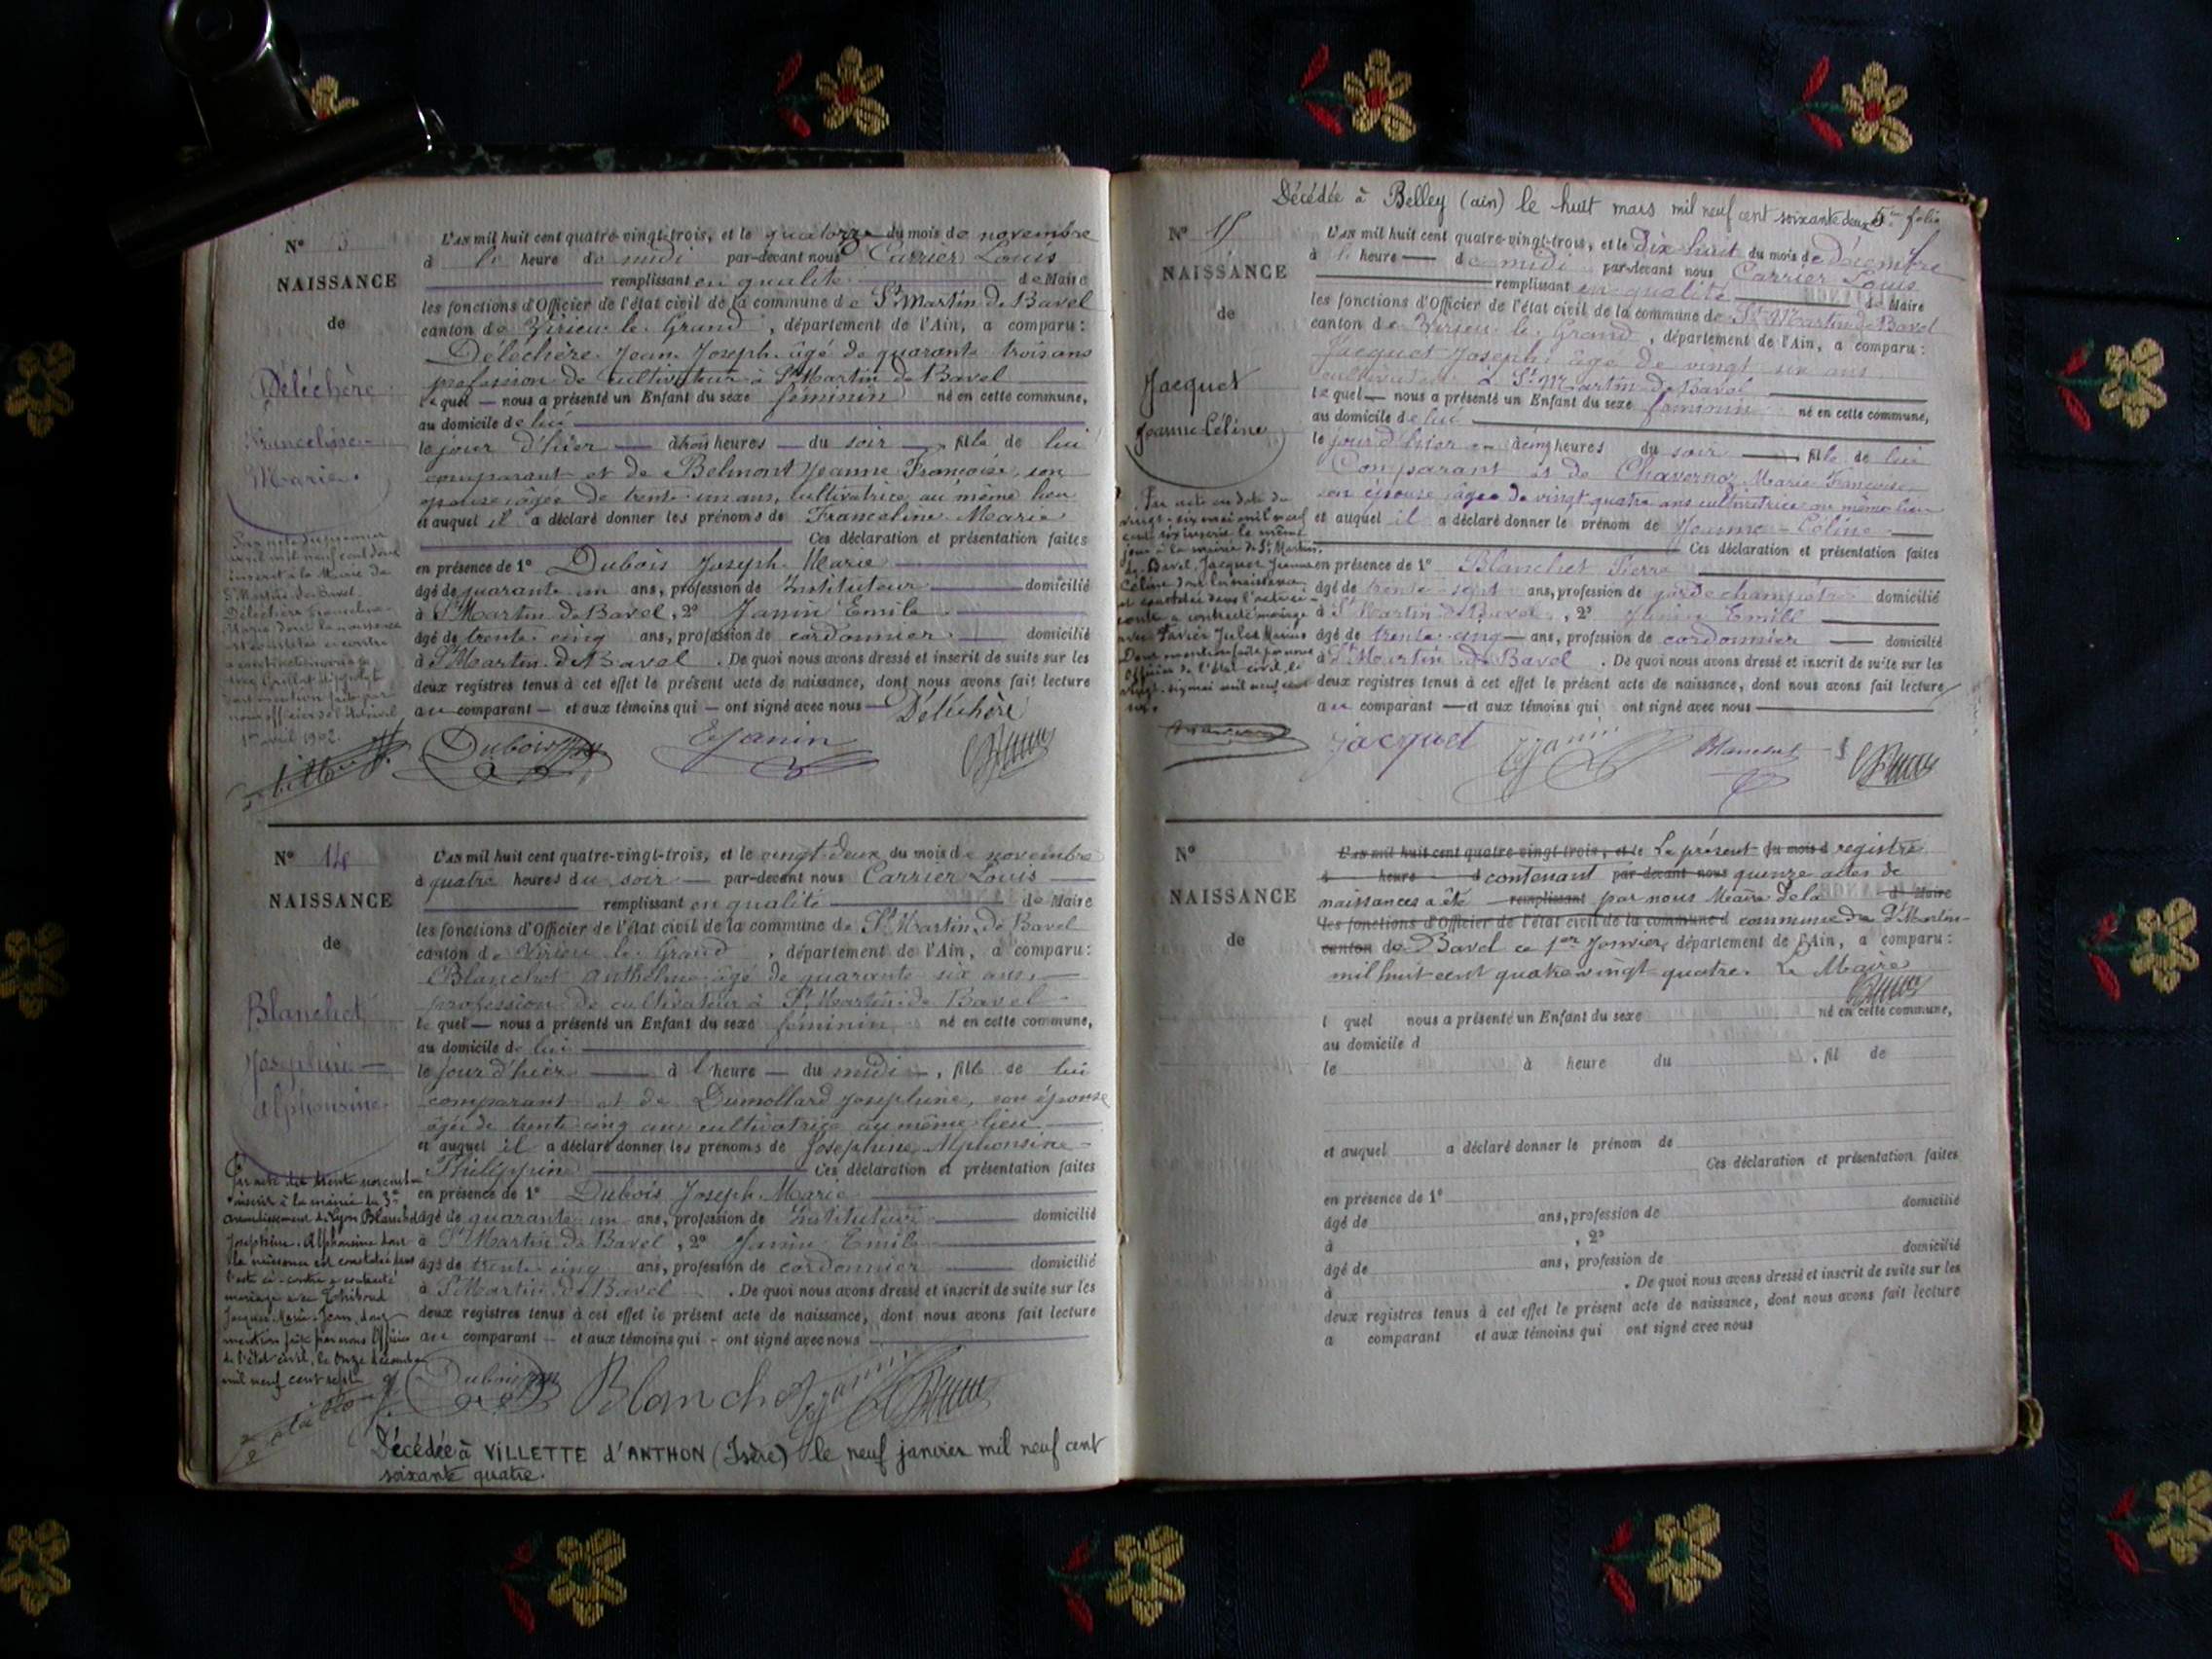 Nº 3
NAISSANCE
de
Déléchère
Franceline
Marie
L'AN mil huit cent quatre-vingt-trois, et le quatorze du mois de novembre
à heure de midi par-devant nous Carrier Louis
remplissant en qualité de Maire
les fonctions d'Officier de l'état civil de la commune de St Martin de Bavel
canton de Virieu le Grand, département de l'Ain, a comparu:
Déléchère Jean Joseph âgé de quarante trois ans
profession de cultivateur à St Martin de Bavel
lequel nous a présenté un Enfant du sexe féminin né en cette commune,
au domicile de lui
le jour d'hier à trois heures du soir, fille de lui
comparant et de Belmont Jeanne Françoise, son
épouse âgée de trente un ans, cultivatrice au même lieu
et auquel il a déclaré donner les prénoms de Franceline Marie
Ces déclaration et présentation faites
en présence de 1º Dubois Joseph Marie
âgé de quarante un ans, profession de Instituteur domicilié
à St Martin de Bavel, 2º Janin Emile
âgé de trente cinq ans, profession de cordonnier domicilié
à St Martin de Bavel. De quoi nous avons dressé et inscrit de suite sur les
deux registres tenus à cet effet le présent acte de naissance, dont nous avons fait lecture
au comparant et aux témoins qui ont signé avec nous Déléchère
1er avril 1902.
Dubois EJanin
Nº 14
NAISSANCE
de
Blanchet
Joséphine
Alphonsine
L'AN mil huit cent quatre-vingt-trois, et le vingt deux du mois de novembre
à quatre heures du soir par-devant nous Carrier Louis
remplissant en qualité de Maire
les fonctions d'Officier de l'état civil de la commune de St Martin de Bavel
canton de Virieu le Grand, département de l'Ain, a comparu:
Blanchet Anthelme âgé de quarante six ans,
profession de cultivateur à St Martin de Bavel
lequel nous a présenté un Enfant du sexe féminin né en cette commune,
au domicile de lui
le jour d'hier à heure du midi, fille de lui
comparant et de Dumollard Joséphine, son épouse
âgée de trente cinq ans cultivatrice au même lieu
et auquel il a déclaré donner les prénoms de Joséphine Alphonsine
Philippine Ces déclaration et présentation faites
en présence de 1º Dubois Joseph Marie
âgé de quarante un ans, profession de Instituteur domicilié
à St Martin de Bavel, 2º Janin Emile
âgé de trente cinq ans, profession de cordonnier domicilié
à St Martin de Bavel. De quoi nous avons dressé et inscrit de suite sur les
deux registres tenus à cet effet le présent acte de naissance, dont nous avons fait lecture
au comparant et aux témoins qui ont signé avec nous
inscrit à la mairie du 3e
arrondissement de Lyon Blanchet
Joséphine Alphonsine dont
la naissance est constatée dans
l'acte ci-contre a contracté
mariage avec Thiboud
Jacques Marie Jean, dont
mention faite par nous Officier
de l'état civil, le onze décembre
mil neuf cent sept
Dubois Blanchet Janin
Décédée à VILLETTE d'ANTHON (Isère) le neuf janvier mil neuf cent
soixante quatre.
Décédée à Belley (ain) le huit mars mil neuf cent soixante deux 5e folio
Nº 15
NAISSANCE
de
Jacquet
Jeanne-Céline
L'AN mil huit cent quatre-vingt-trois, et le Dix huit du mois de décembre
à heure de midi par-devant nous Carrier Louis
remplissant en qualité de Maire
les fonctions d'Officier de l'état civil de la commune de St Martin de Bavel
canton de Virieu le Grand, département de l'Ain, a comparu:
Jacquet Joseph âgé de vingt six ans
cultivateur à St Martin de Bavel
lequel nous a présenté un Enfant du sexe féminin né en cette commune,
au domicile de lui
le jour d'hier à cinq heures du soir, fille de lui
Comparant et de Chavernoz Marie Françoise
son épouse âgée de vingt quatre ans cultivatrice au même lieu
et auquel il a déclaré donner le prénom de Jeanne-Céline
Ces déclaration et présentation faites
en présence de 1º Blanchet Pierre
âgé de trente sept ans, profession de garde champêtre domicilié
à St Martin de Bavel, 2º Janin Emile
âgé de trente cinq ans, profession de cordonnier domicilié
à St Martin de Bavel. De quoi nous avons dressé et inscrit de suite sur les
deux registres tenus à cet effet le présent acte de naissance, dont nous avons fait lecture
au comparant et aux témoins qui ont signé avec nous
Par acte en date du
vingt-six mai mil neuf
cent six inscrit le même
jour à la mairie de St Martin
de Bavel, Jacquet Jeanne
Céline dont la naissance
Jacquet Janin Blanchet
Nº
NAISSANCE
de
L'AN mil huit cent quatre-vingt-trois, et le Le présent du mois d registre
à heure d contenant par-devant nous quinze actes de
naissances a été remplissant par nous Maire de la d Maire
les fonctions d'Officier de l'état civil de la commune d commune de St Martin
canton de Bavel ce 1er Janvier, département de l'Ain, a comparu:
mil huit cent quatre vingt quatre. Le Maire
l quel nous a présenté un Enfant du sexe né en cette commune,
au domicile d
le à heure du , fil de
et auquel a déclaré donner le prénom de
Ces déclaration et présentation faites
en présence de 1º
âgé de ans, profession de domicilié
à , 2º
âgé de ans, profession de domicilié
à . De quoi nous avons dressé et inscrit de suite sur les
deux registres tenus à cet effet le présent acte de naissance, dont nous avons fait lecture
a comparant et aux témoins qui ont signé avec nous